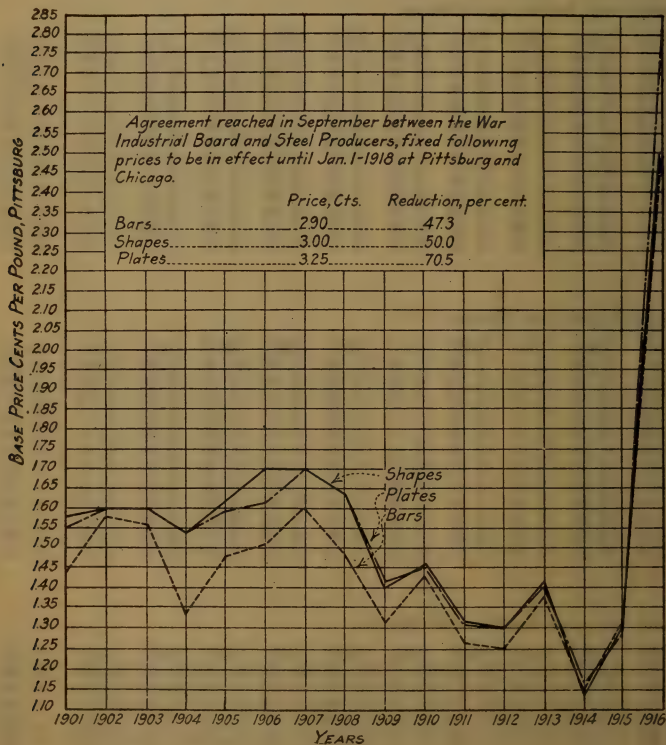 2.85
2.80
2.75
2.70
2.65
2.60
2.55
2.50
2.45
2.40
2.35
2.30
2.25
2.20
2.15
2.10
2.05
2.00
1.95
1.90
1.85
1.80
1.75
1.70
1.65
1.60
1.55
1.50
1.45
1.40
1.35
1.30
1.25
1.20
1.15
1.10
BASE PRICE CENTS PER POUND, PITTSBURG
Agreement reached in September between the War
Industrial Board and Steel Producers, fixed following
prices to be in effect until Jan. 1-1918 at Pittsburg and
Chicago.
Price, Cts. Reduction, per cent.
Bars 2.90 47.3
Shapes 3.00 50.0
Plates 3.25 70.5
Shapes
Plates
Bars
1901 1902 1903 1904 1905 1906 1907 1908 1909 1910 1911 1912 1913 1914 1915 1916
YEARS